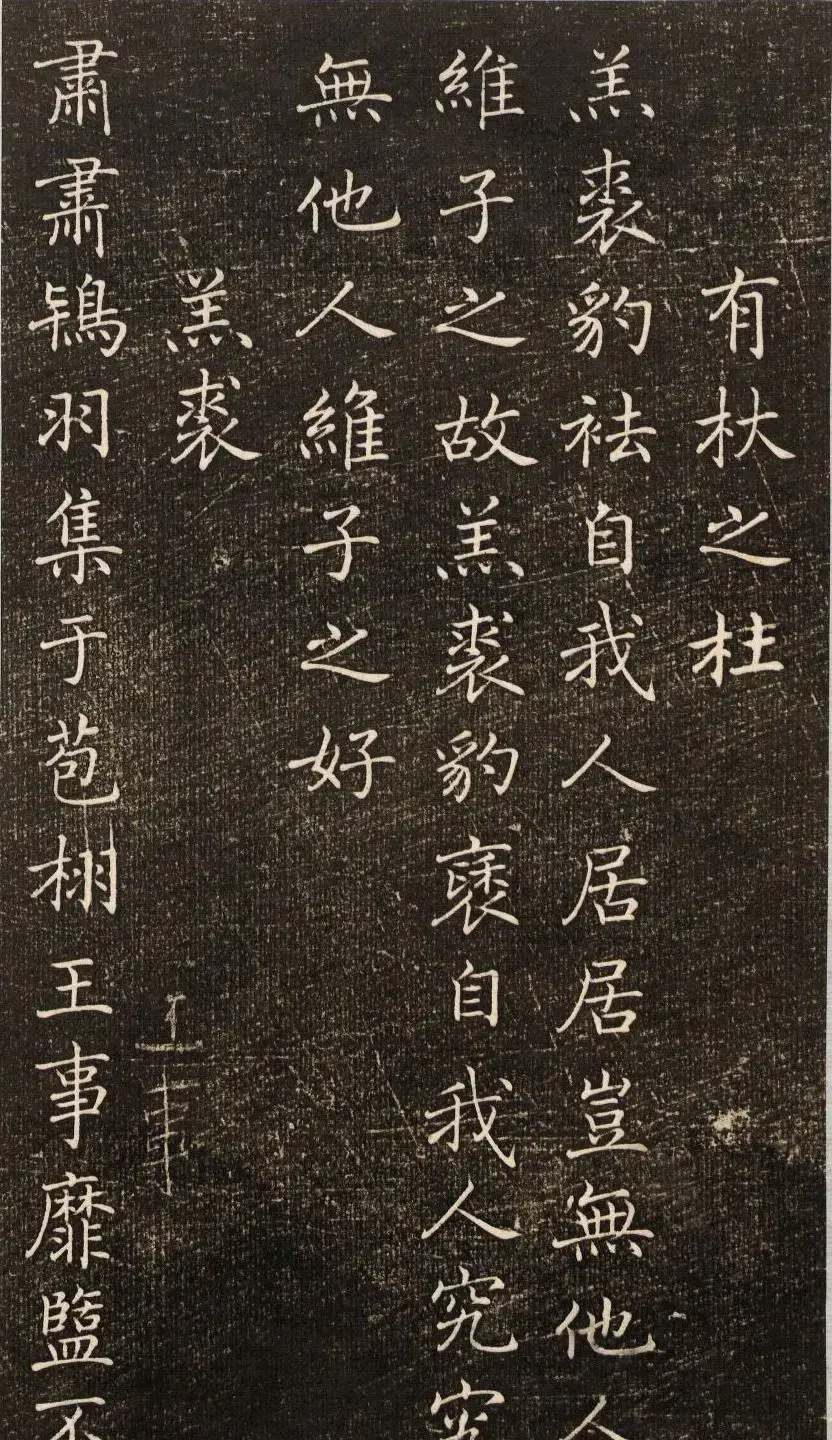 有杕之柱
羔裘豹袪自我人居居豈無他人
維子之故羔裘豹褎自我人究究
無他人維子之好
羔裘
肅肅鴇羽集于苞栩王事靡盬不